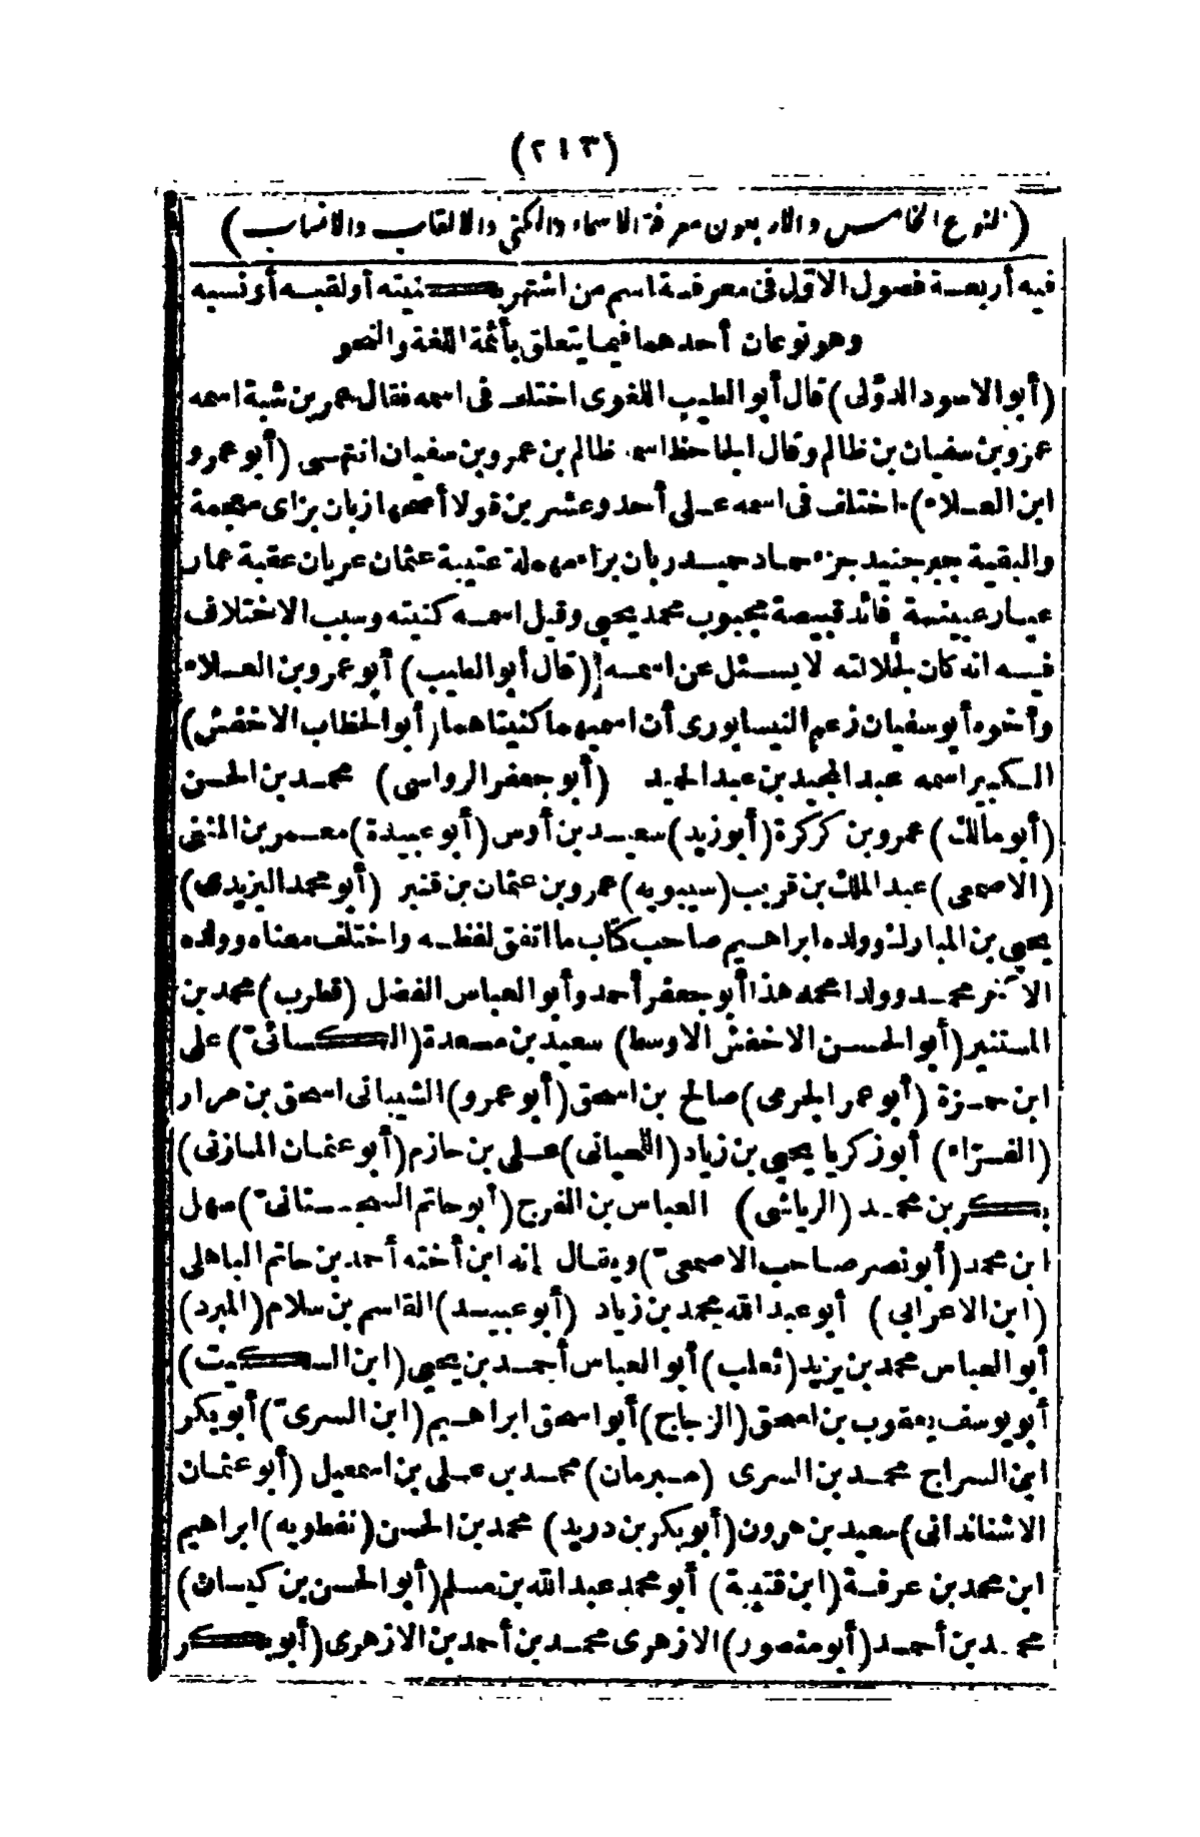 (٢١٣)
(النوع الخامس والاربعون معرفة الاسماء والكنى والالقاب والانساب)
فيه أربعة فصول الاوّل فى معرفة اسم من اشتهر بكنيته أو لقبه أو نسبه
وهو نوعان أحدهما فيما يتعلق بأئمة اللغة والنحو
(أبو الاسود الدؤلى) قال أبو الطيب اللغوى اختلف فى اسمه فقال عمر بن شبة اسمه
عمرو بن سفيان بن ظالم وقال الجاحظ اسمه ظالم بن عمرو بن سفيان انتهى (أبو عمرو
ابن العلاء) اختلف فى اسمه على أحد وعشرين قولا أصحها زبان بزاى معجمة
والبقية جبر جنيد جزء حماد حميد ربان براء مهملة عتيبة عثمان عريان عقبة عمار
عيار عيينة فائد قبيصة محبوب محمد يحيى وقيل اسمه كنيته وسبب الاختلاف
فيه انه كان لجلالته لا يسئل عن اسمه (قال أبو الطيب) أبو عمرو بن العلاء
وأخوه أبو سفيان زعم النيسابورى أن اسميهما كنيتاهما (أبو الخطاب الاخفش)
الكبير اسمه عبد المجيد بن عبد الحميد (أبو جعفر الرواسى) محمد بن الحسن
(أبو مالك) عمرو بن كركرة (أبو زيد) سعيد بن أوس (أبو عبيدة) معمر بن المثنى
(الاصمعى) عبد الملك بن قريب (سيبويه) عمرو بن عثمان بن قنبر (أبو محمد اليزيدى)
يحيى بن المبارك وولده ابراهيم صاحب كتاب ما اتفق لفظه واختلف معناه وولده
الآخر محمد وولدا محمد هذا أبو جعفر أحمد وأبو العباس الفضل (قطرب) محمد بن
المستنير (أبو الحسن الاخفش الاوسط) سعيد بن مسعدة (الكسائى) على
ابن حمزة (أبو عمر الجرمى) صالح بن اسحق (أبو عمرو) الشيبانى اسحق بن مرار
(الفرّاء) أبو زكريا يحيى بن زياد (اللحيانى) على بن حازم (أبو عثمان المازنى)
بكر بن محمد (الرياشى) العباس بن الفرج (أبو حاتم السجستانى) سهل
ابن محمد (أبو نصر صاحب الاصمعى) ويقال إنه ابن أخته أحمد بن حاتم الباهلى
(ابن الاعرابى) أبو عبد الله محمد بن زياد (أبو عبيد) القاسم بن سلام (المبرد)
أبو العباس محمد بن يزيد (ثعلب) أبو العباس أحمد بن يحيى (ابن السكيت)
أبو يوسف يعقوب بن اسحق (الزجاج) أبو اسحق ابراهيم (ابن السرى) أبو بكر
ابن السراج محمد بن السرى (مبرمان) محمد بن على بن اسمعيل (أبو عثمان
الاشناندانى) سعيد بن هرون (أبو بكر بن دريد) محمد بن الحسن (نفطويه) ابراهيم
ابن محمد بن عرفة (ابن قتيبة) أبو محمد عبد الله بن مسلم (أبو الحسن بن كيسان)
محمد بن أحمد (أبو منصور) الازهرى محمد بن أحمد بن الازهرى (أبو بكر